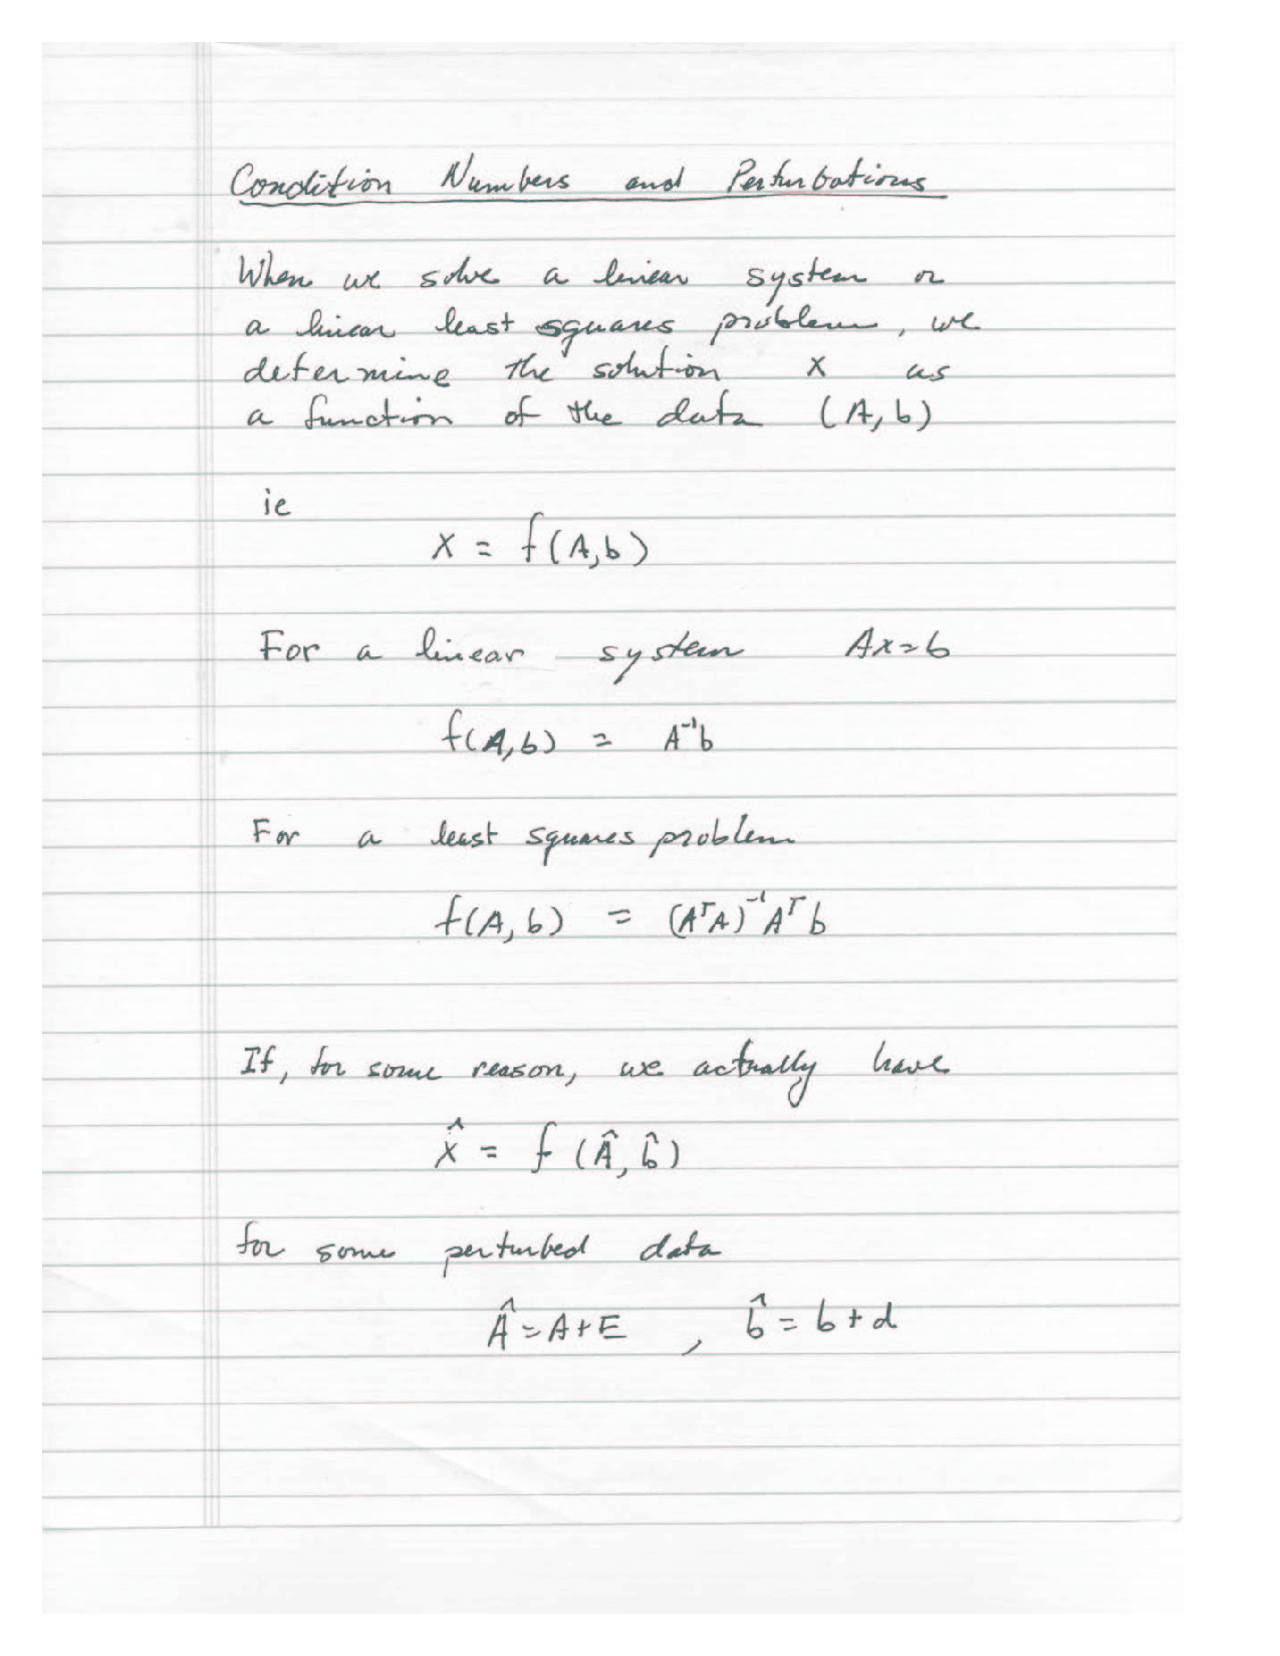 Condition Numbers and Perturbations
When we solve a linear system or
a linear least squares problem, we
determine the solution x as
a function of the data (A, b)
ie
x = f(A,b)
For a linear system Ax=b
f(A,b) = A⁻¹b
For a least squares problem
f(A, b) = (AᵀA)⁻¹Aᵀb
If, for some reason, we actually have
x̂ = f(Â, b̂)
for some perturbed data
Â=A+E , b̂=b+d